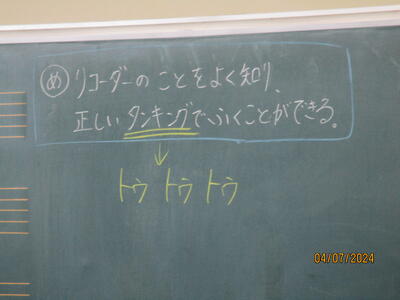 め リコーダーのことをよく知り、
正しいタンキングでふくことができる。
トゥ トゥ トゥ
04/07/2024